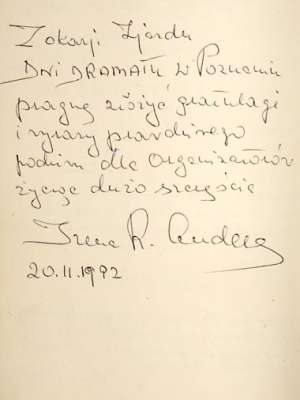 Z okazji Zjazdu
DNI DRAMATU w Poznaniu
pragnę złożyć gratulacje
i wyrazy prawdziwego
podziwu dla Organizatorów
życząc dużo szczęścia
Irena R.
20.11.1992